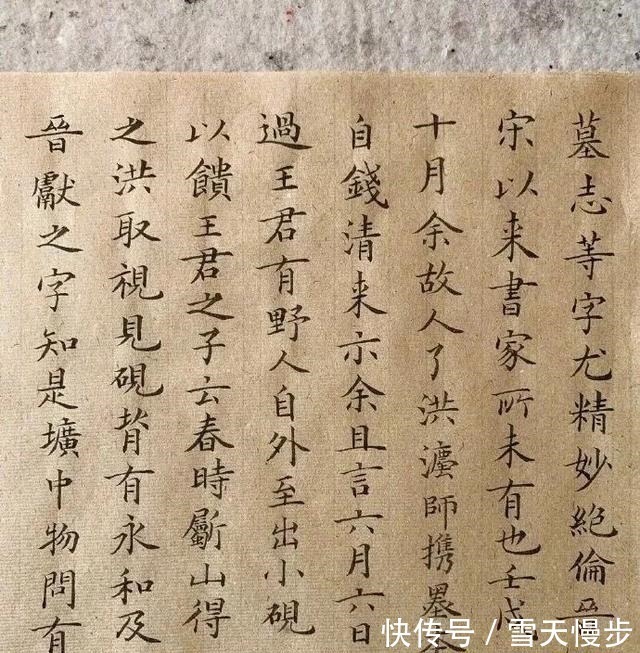 墓志等字尤精妙絕倫晉
宋以来書家所未有也壬戌
十月余故人了洪瀘師携墨本
自錢清来示余且言六月六日
過王君有野人自外至出小硯
以饋王君之子云春時斸山得
之洪取視見硯背有永和及
晉獻之字知是壙中物問有
快传号 / 雪天慢步